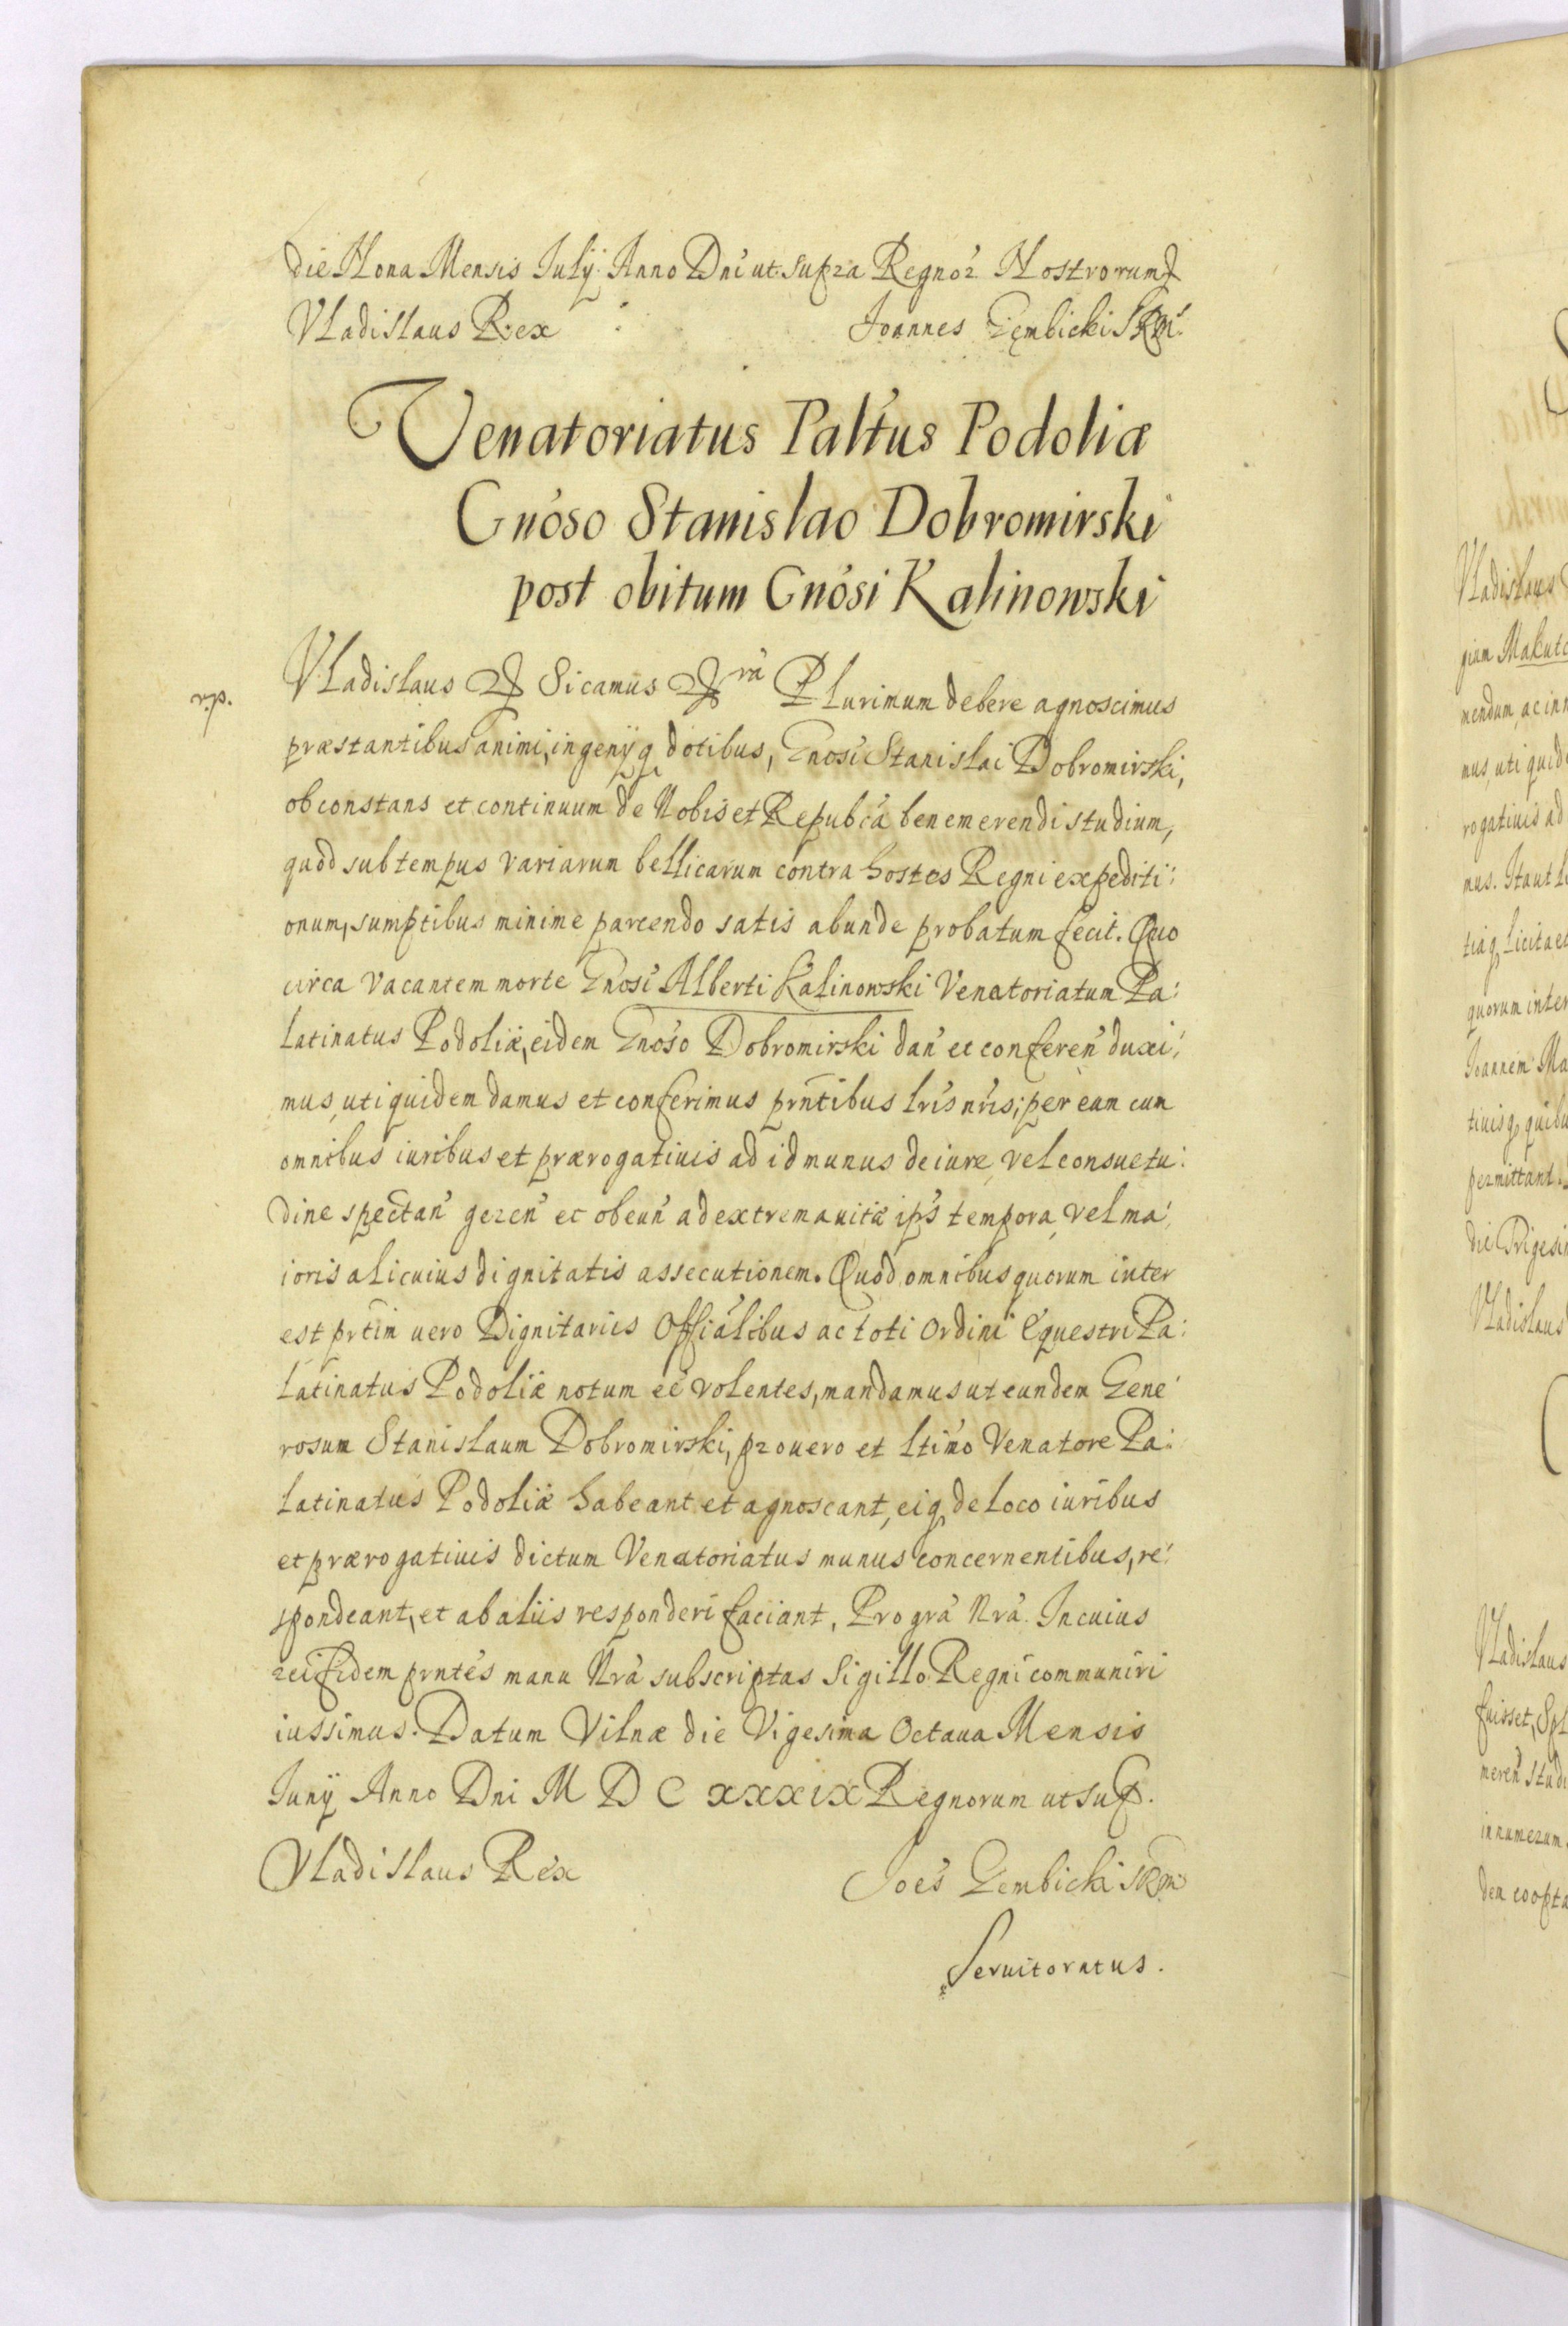 die Nona Mensis Julÿ Anno Dni ut supra Regnor Nostrorum
Vladislaus Rex Joannes Gembicki SRM
Venatoriatus Paltus Podoliæ
Gnoso Stanislao Dobromirski
post obitum Gnosi Kalinowski
Vladislaus Sicamus Plurimum debere agnoscimus
præstantibus animi, ingenÿq dotibus, Gnosi Stanislai Dobromirski,
ob constans et continuum de Nobis et Repubca bene merendi studium,
quod sub tempus variarum bellicarum contra hostes Regni expediti:
onum, sumptibus minime parcendo satis abunde probatum fecit. Quo
circa vacantem morte Gnosi Alberti Kalinowski Venatoriatum Pa:
latinatus Podoliæ, eidem Gnoso Dobromirski dan et conferen duxi:
mus, uti quidem damus et conferimus prntibus lris nris; per eum cum
omnibus iuribus et prærogatiuis ad id munus de iure, vel consuetu:
dine spectan geren et obeun ad extrema uitæ ips tempora, vel ma:
ioris alicuius dignitatis assecutionem. Quod omnibus quorum inter
est prtim uero Dignitariis Offialibus ac toti Ordini Equestri Pa:
latinatus Podoliæ notum ee volentes, mandamus ut eundem Gene
rosum Stanislaum Dobromirski, pro uero et ltimo Venatore Pa:
latinatus Podoliæ habeant et agnoscant, eiq de loco iuribus
et prærogatiuis dictum Venatoriatus munus concernentibus, re:
spondeant, et ab aliis responderi faciant, Pro gra Nra. In cuius
rei fidem prntes manu Nra subscriptas Sigillo Regni communiri
iussimus. Datum Vilnæ die Vigesima Octaua Mensis
Junÿ Anno Dni M D C xxxix Regnorum ut sup.
Vladislaus Rex Joes Gembicki SRM
Seruitoratus.